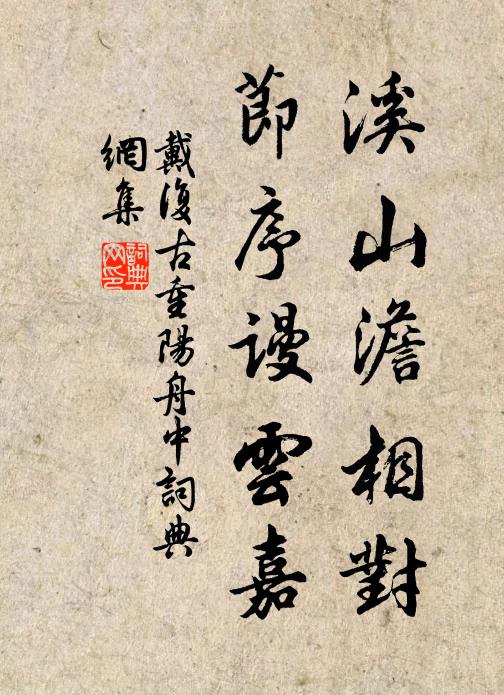 溪山澹相對
節序謾雲嘉
戴復古重陽舟中詞典
網集
詞典网印